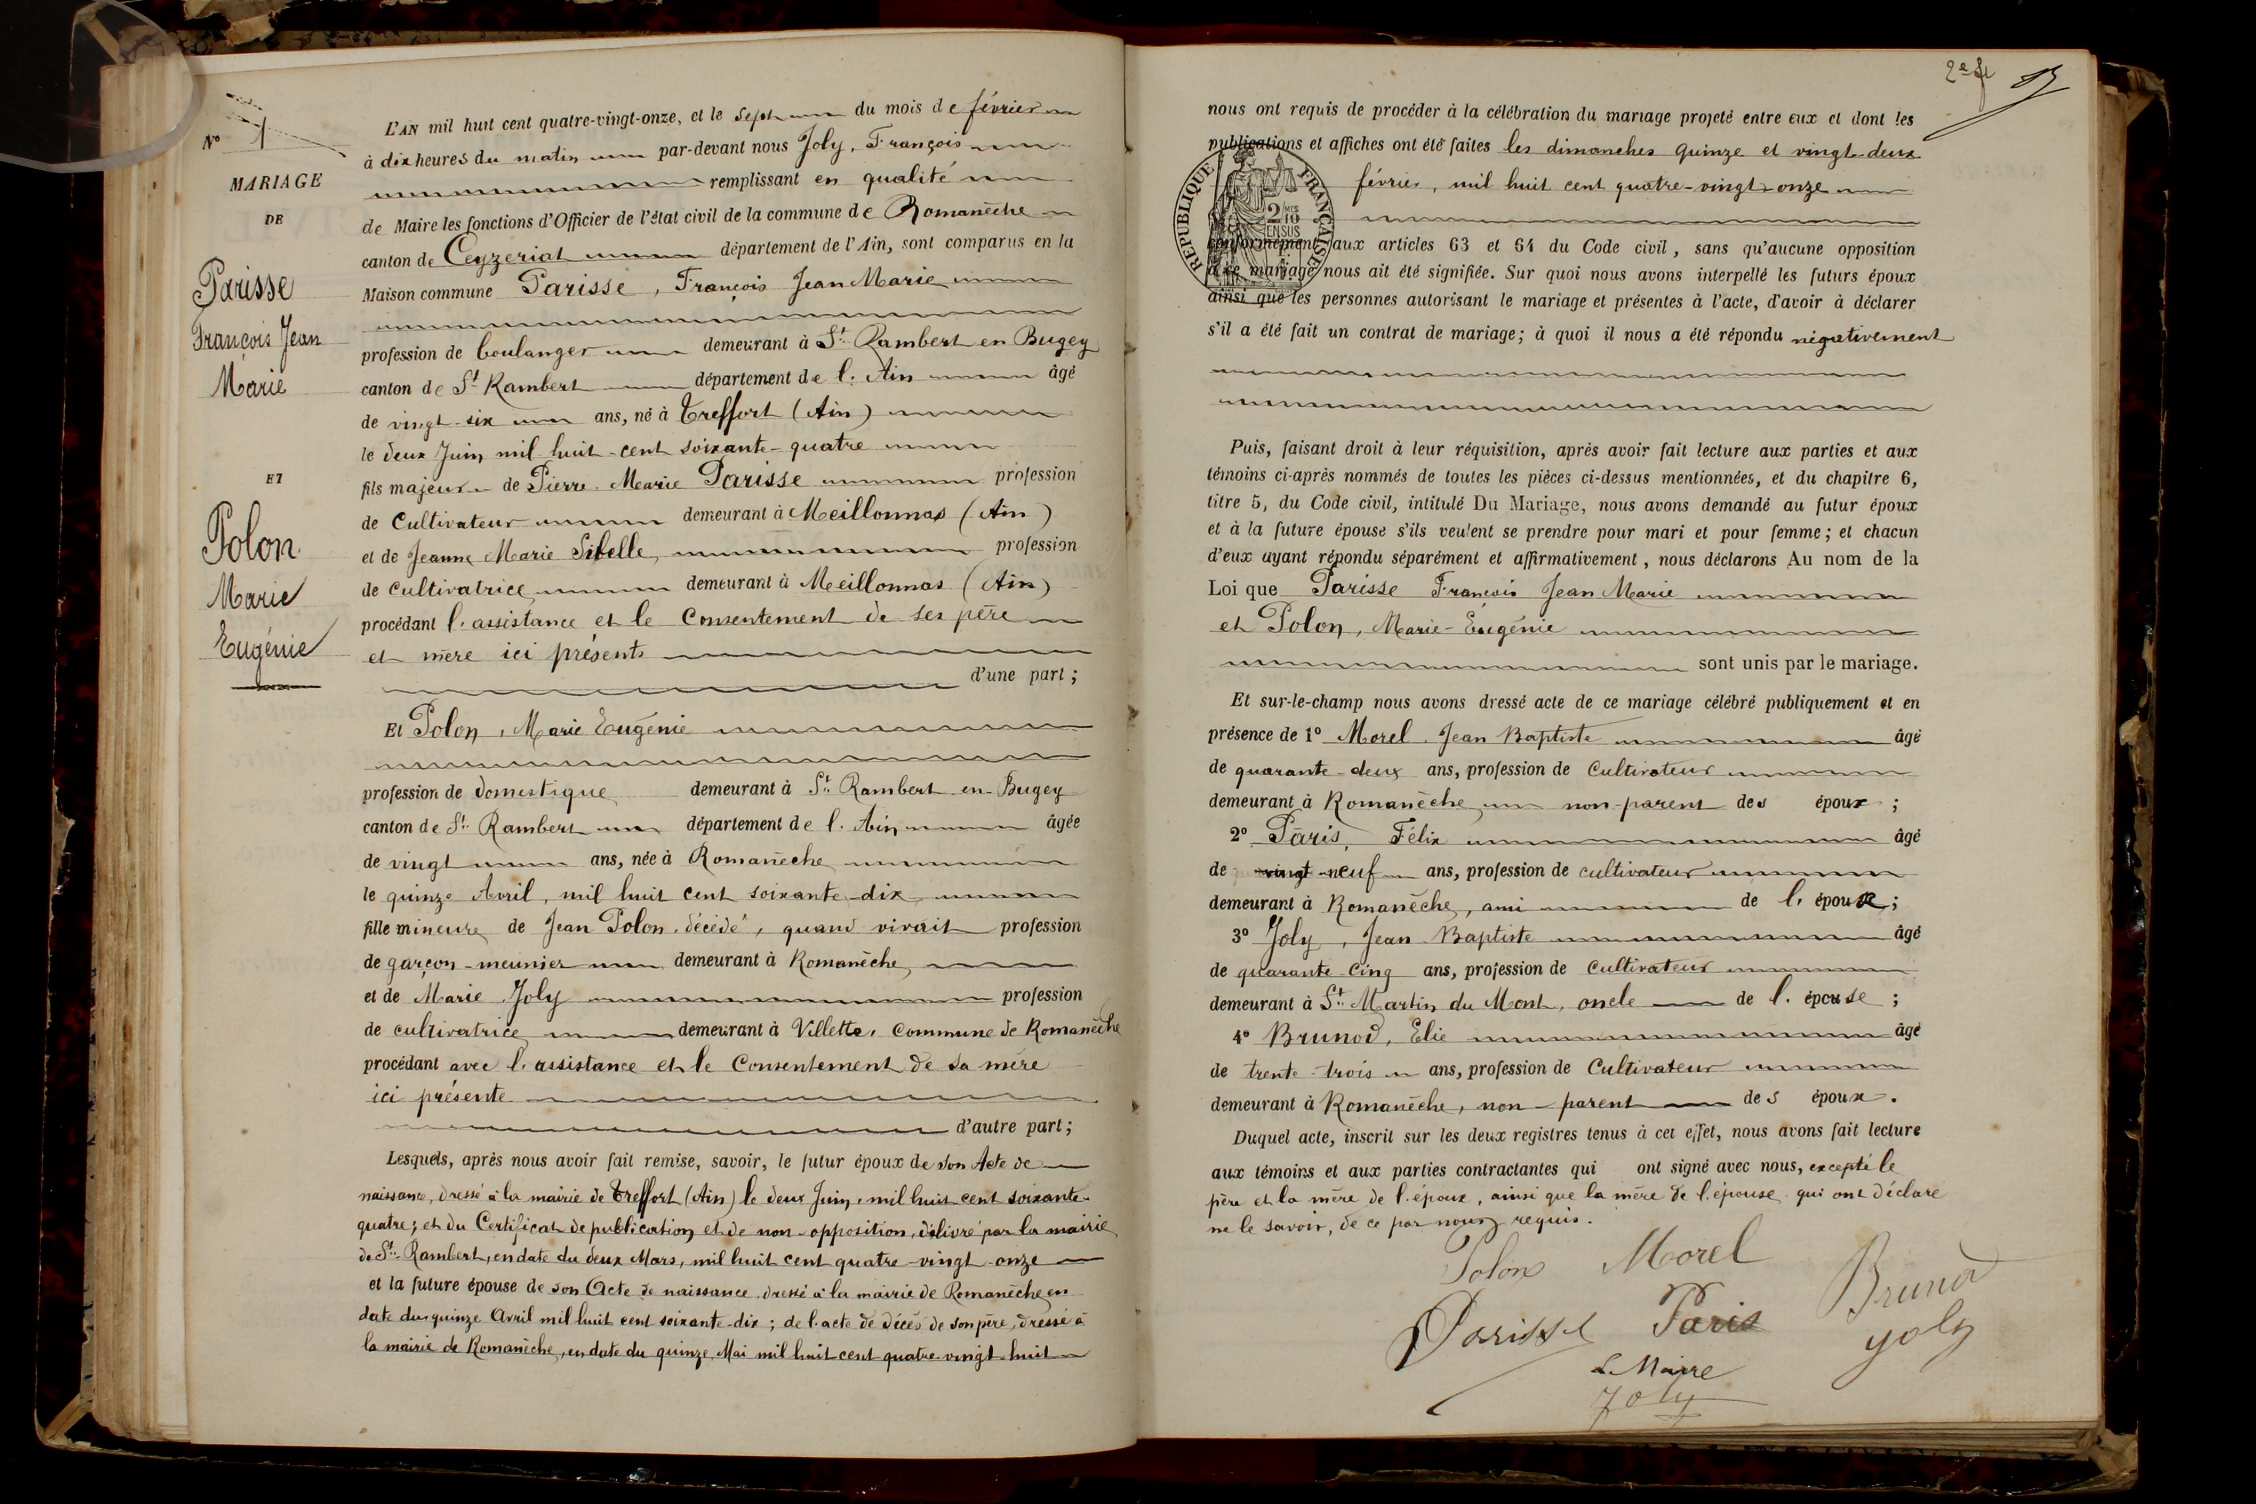 Nº 1
MARIAGE
DE
Parisse
François Jean
Marie
ET
Polon
Marie
Eugénie
L'AN mil huit cent quatre-vingt-onze, et le sept du mois de février
à dix heures du matin par-devant nous Joly, François
remplissant en qualité
de Maire les fonctions d'Officier de l'état civil de la commune de Romanèche
canton de Ceyzeriat département de l'Ain, sont comparus en la
Maison commune Parisse, François Jean Marie
profession de boulanger demeurant à St Rambert en Bugey
canton de St Rambert département de l'Ain âgé
de vingt-six ans, né à Treffort (Ain)
le deux Juin mil huit-cent soixante-quatre
fils majeur de Pierre Marie Parisse profession
de Cultivateur demeurant à Meillonnas (Ain)
et de Jeanne Marie Sibelle profession
de cultivatrice demeurant à Meillonnas (Ain)
procédant l'assistance et le Consentement de ses père
et mère ici présents
d'une part ;
Et Polon, Marie Eugénie
profession de domestique demeurant à St Rambert-en-Bugey
canton de St Rambert département de l'Ain âgée
de vingt ans, née à Romanèche
le quinze Avril, mil huit cent soixante-dix
fille mineure de Jean Polon, décédé, quand vivait profession
de garçon-meunier demeurant à Romanèche
et de Marie Joly profession
de cultivatrice demeurant à Villette, commune de Romanèche
procédant avec l'assistance et le Consentement de sa mère
ici présente
d'autre part ;
Lesquels, après nous avoir fait remise, savoir, le futur époux de son Acte de
naissance, dressé à la mairie de Treffort (Ain) le deux Juin, mil huit cent soixante-
quatre ; et du Certificat de publication et de non-opposition, délivré par la mairie
de St Rambert, en date du deux Mars, mil huit cent quatre-vingt-onze
et la future épouse de son Acte de naissance dressé à la mairie de Romanèche en
date du quinze Avril mil huit cent soixante-dix ; de l'acte de décès de son père, dressé à
la mairie de Romanèche, en date du quinze Mai mil huit cent quatre-vingt-huit
nous ont requis de procéder à la célébration du mariage projeté entre eux et dont les
publications et affiches ont été faites les dimanches quinze et vingt-deux
février, mil huit cent quatre-vingt-onze
RÉPUBLIQUE FRANÇAISE
2/10 EN SUS
conformément aux articles 63 et 64 du Code civil, sans qu'aucune opposition
à ce mariage nous ait été signifiée. Sur quoi nous avons interpellé les futurs époux
ainsi que les personnes autorisant le mariage et présentes à l'acte, d'avoir à déclarer
s'il a été fait un contrat de mariage ; à quoi il nous a été répondu négativement
Puis, faisant droit à leur réquisition, après avoir fait lecture aux parties et aux
témoins ci-après nommés de toutes les pièces ci-dessus mentionnées, et du chapitre 6,
titre 5, du Code civil, intitulé Du Mariage, nous avons demandé au futur époux
et à la future épouse s'ils veulent se prendre pour mari et pour femme ; et chacun
d'eux ayant répondu séparément et affirmativement, nous déclarons Au nom de la
Loi que Parisse François Jean Marie
et Polon, Marie-Eugénie
sont unis par le mariage.
Et sur-le-champ nous avons dressé acte de ce mariage célébré publiquement et en
présence de 1º Morel Jean Baptiste âgé
de quarante-deux ans, profession de cultivateur
demeurant à Romanèche non-parent des époux ;
2º Paris, Félix âgé
de vingt-neuf ans, profession de cultivateur
demeurant à Romanèche, ami de l'épouse ;
3º Joly, Jean Baptiste âgé
de quarante-cinq ans, profession de cultivateur
demeurant à St Martin du Mont, oncle de l'épouse ;
4º Brunod, Elie âgé
de trente-trois ans, profession de Cultivateur
demeurant à Romanèche, non-parent des époux.
Duquel acte, inscrit sur les deux registres tenus à cet effet, nous avons fait lecture
aux témoins et aux parties contractantes qui ont signé avec nous, excepté le
père et la mère de l'époux, ainsi que la mère de l'épouse qui ont déclaré
ne le savoir, de ce par nous requis.
Polon Morel Brunod
Parisse Paris Joly
Le Maire
Joly